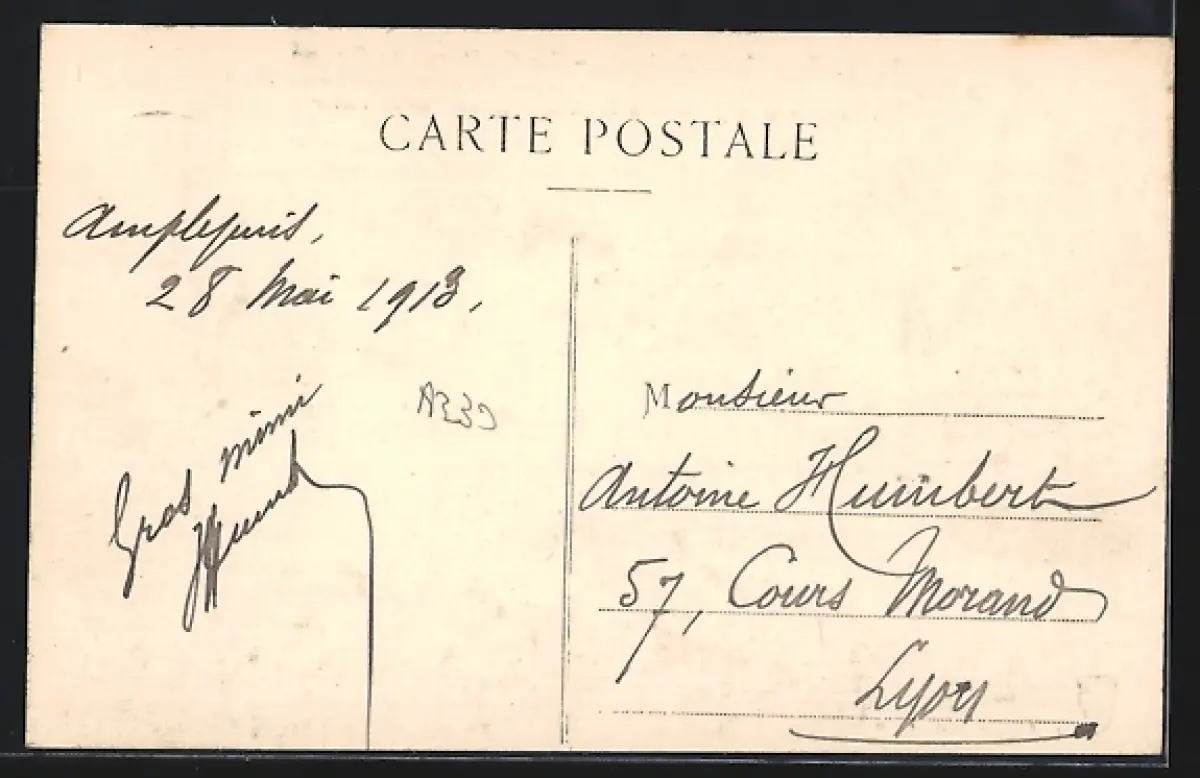 CARTE POSTALE
Amplepuis,
28 Mai 1913,
Gros mimi
A339
Monsieur
Antoine Humbert
57, Cours Morand
Lyon